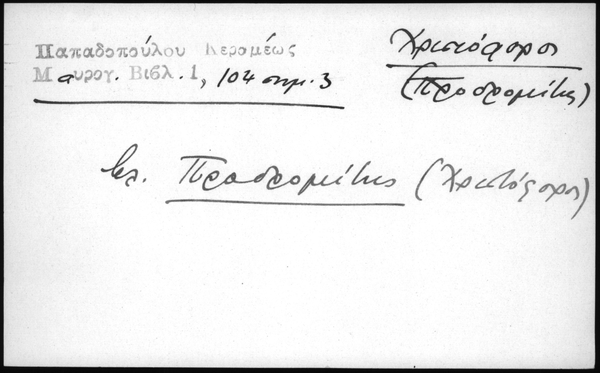 Παπαδοπούλου Κεραμέως
Μαυρογ. Βιβλ. 1, 104 σημ. 3
Χριστόφορος
(Προδρομίτης)
Βλ. Προδρομίτης (Χριστόφορος)